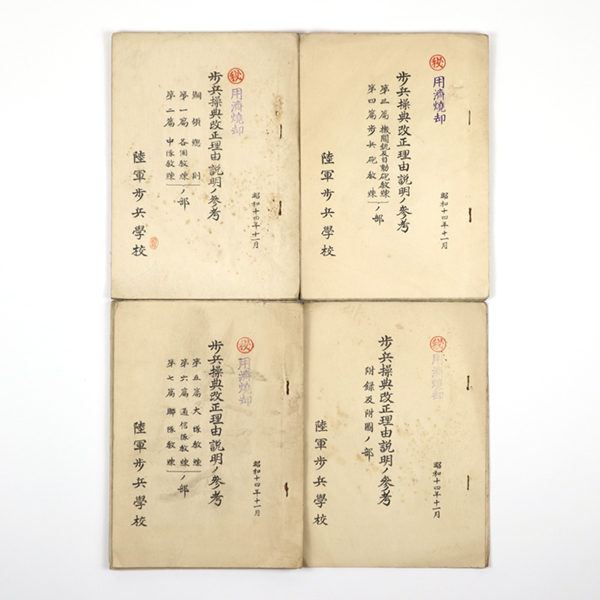 ㊙
用済焼却
歩兵操典改正理由説明ノ参考
綱領總則
第一篇 各個教練
第二篇 中隊教練
ノ部
昭和十四年十一月
陸軍歩兵學校
㊙
用済焼却
歩兵操典改正理由説明ノ参考
第三篇 機関銃及自動砲教練
第四篇 歩兵砲教練
ノ部
昭和十四年十一月
陸軍歩兵學校
㊙
用済焼却
歩兵操典改正理由説明ノ参考
第五篇 大隊教練
第六篇 通信隊教練
第七篇 聯隊教練
ノ部
昭和十四年十一月
陸軍歩兵學校
㊙
用済焼却
歩兵操典改正理由説明ノ参考
附録及附圖ノ部
昭和十四年十一月
陸軍歩兵學校